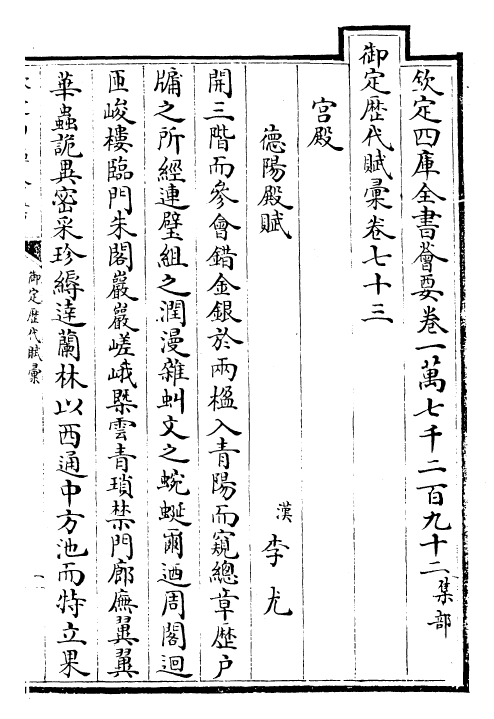 欽定四庫全書薈要卷一萬七千二百九十二集部
御定歷代賦彙卷七十三
宮殿
德陽殿賦
漢 李尤
開三階而參會錯金銀於兩楹入青陽而窺總章歷户
牖之所經連璧組之潤漫雜虯文之蜿蜒爾迺周閣迴
匝峻樓臨門朱閣巖巖嵯峨槩雲青瑣禁門廊廡翼翼
華蟲詭異密采珍縟逹蘭林以西通中方池而特立果
御定歷代賦彙
一